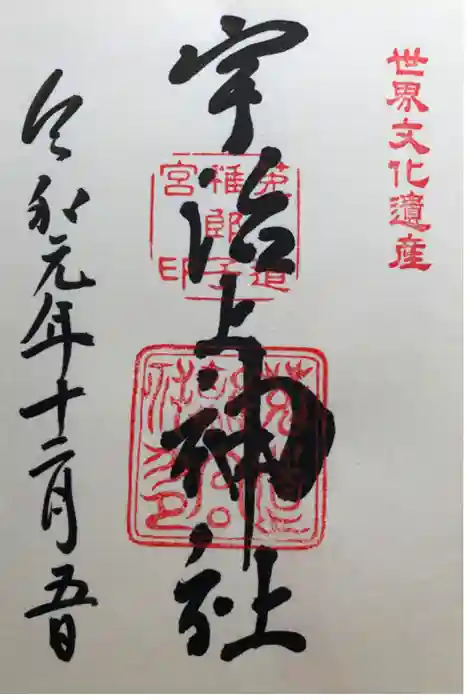 世界文化遺産
宇治上神社
菟道稚郎子宮印
令和元年十二月五日